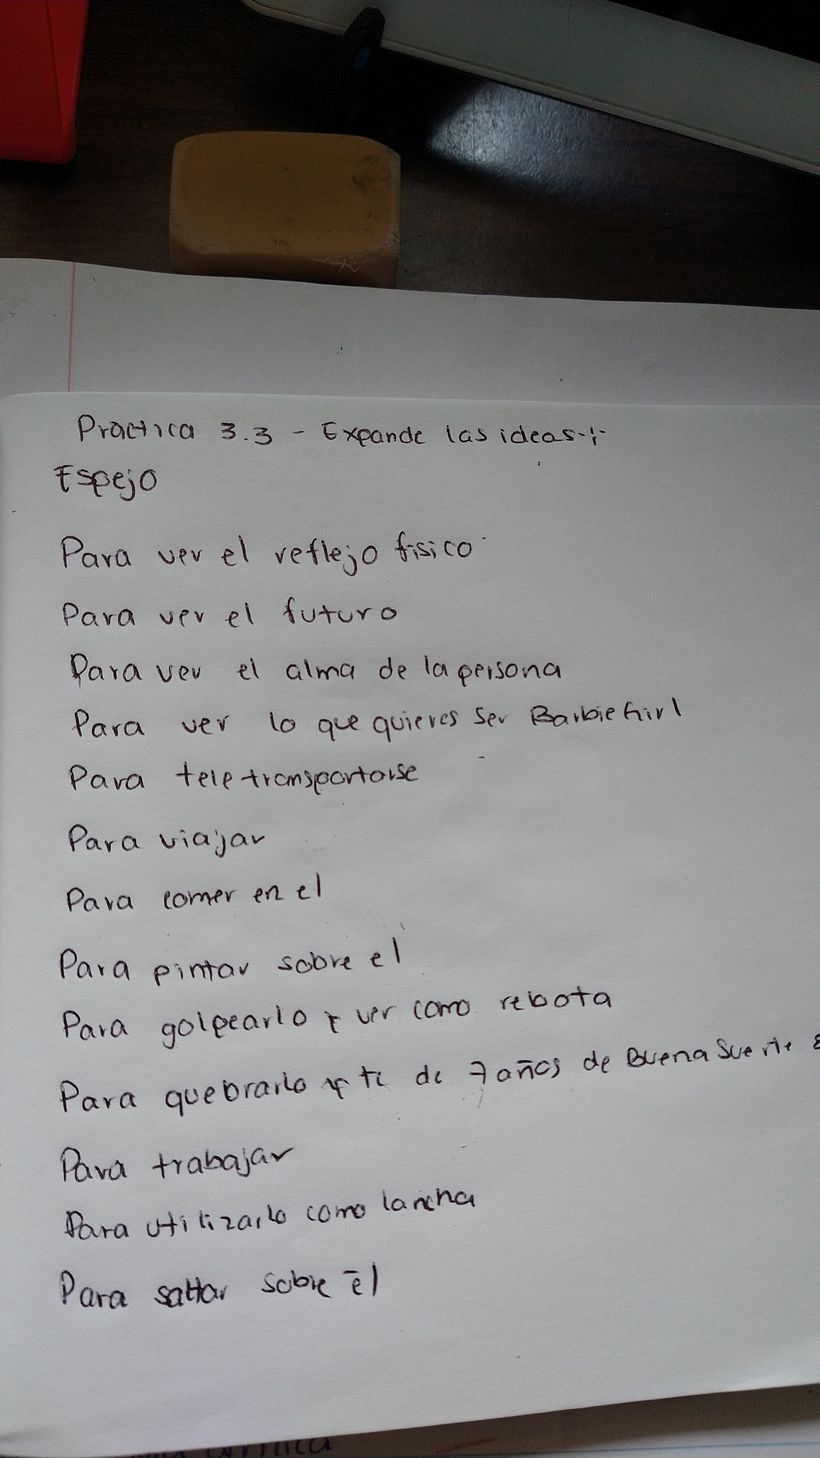 Practica 3.3 - Expande las ideas.-
Espejo
Para ver el reflejo fisico
Para ver el futuro
Para ver el alma de la persona
Para ver lo que quieres ser Barbie Girl
Para teletransportarse
Para viajar
Para comer en el
Para pintar sobre el
Para golpearlo y ver como rebota
Para quebrarlo y te de 7 años de Buena Suerte
Para trabajar
Para utilizarlo como lancha
Para saltar sobre él